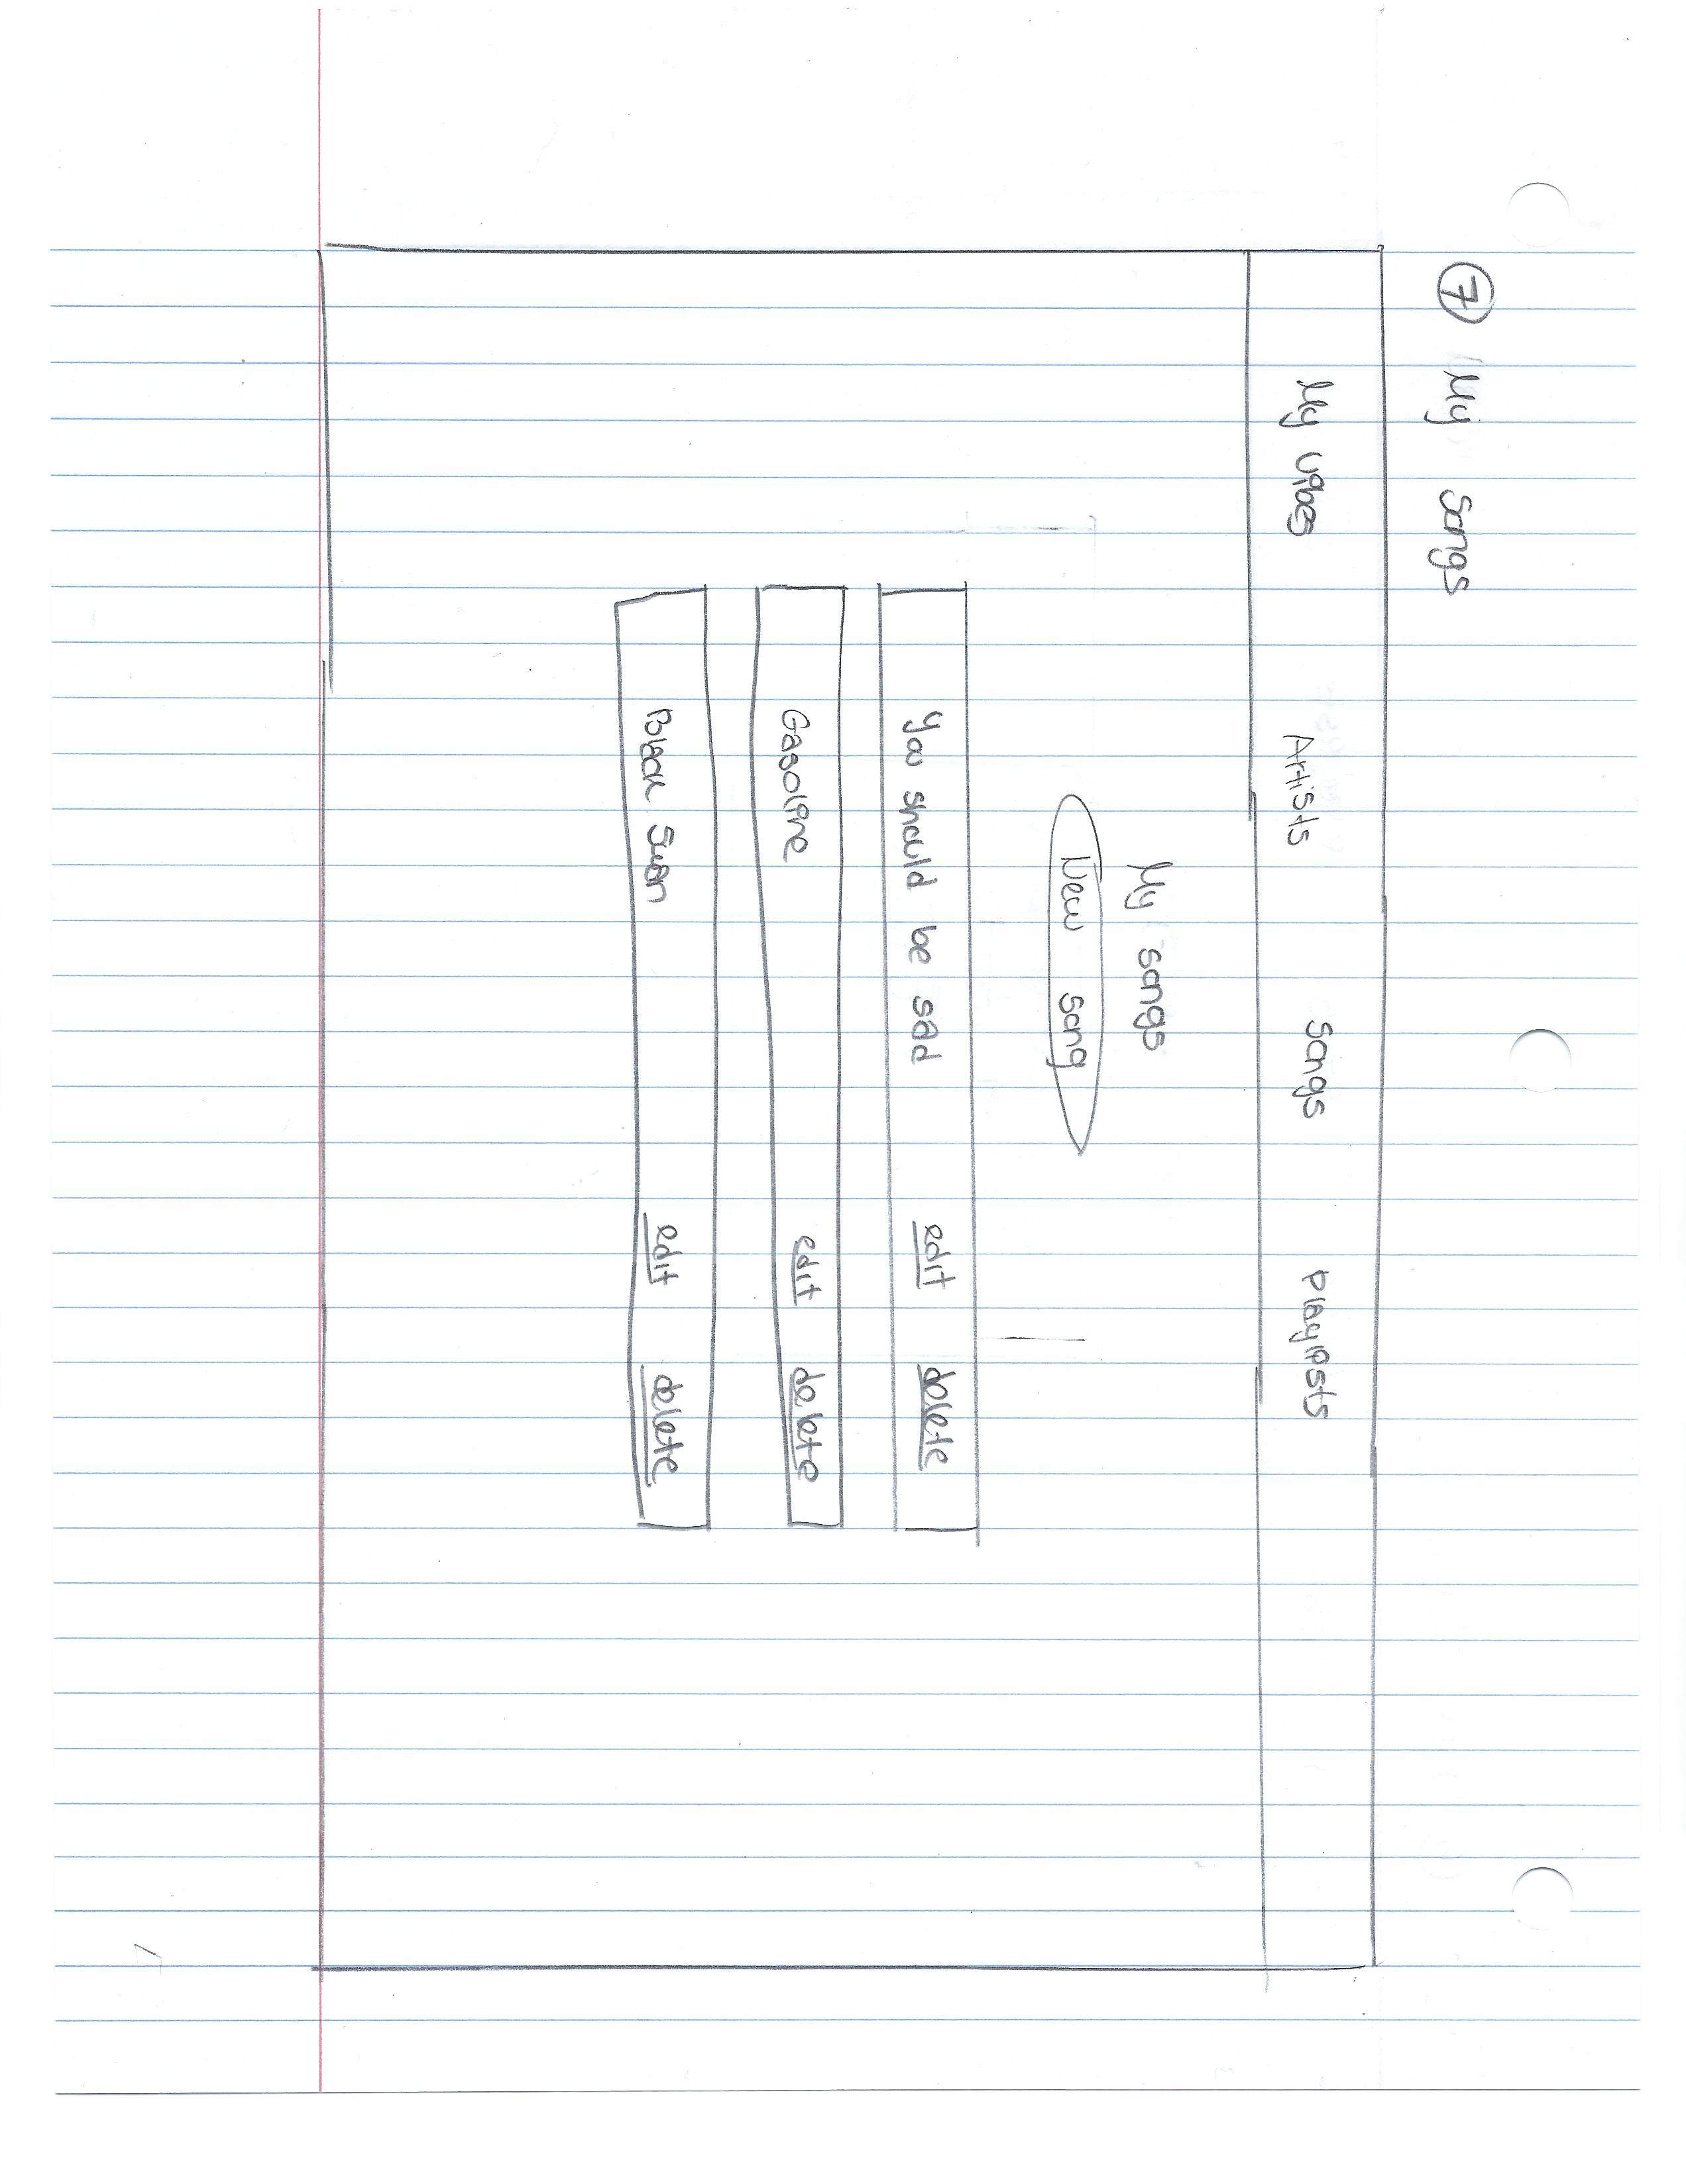 7 My songs
My vibes Artists songs playlists
My songs
New song
You should be sad edit delete
Gasoline edit delete
Black Swan edit delete